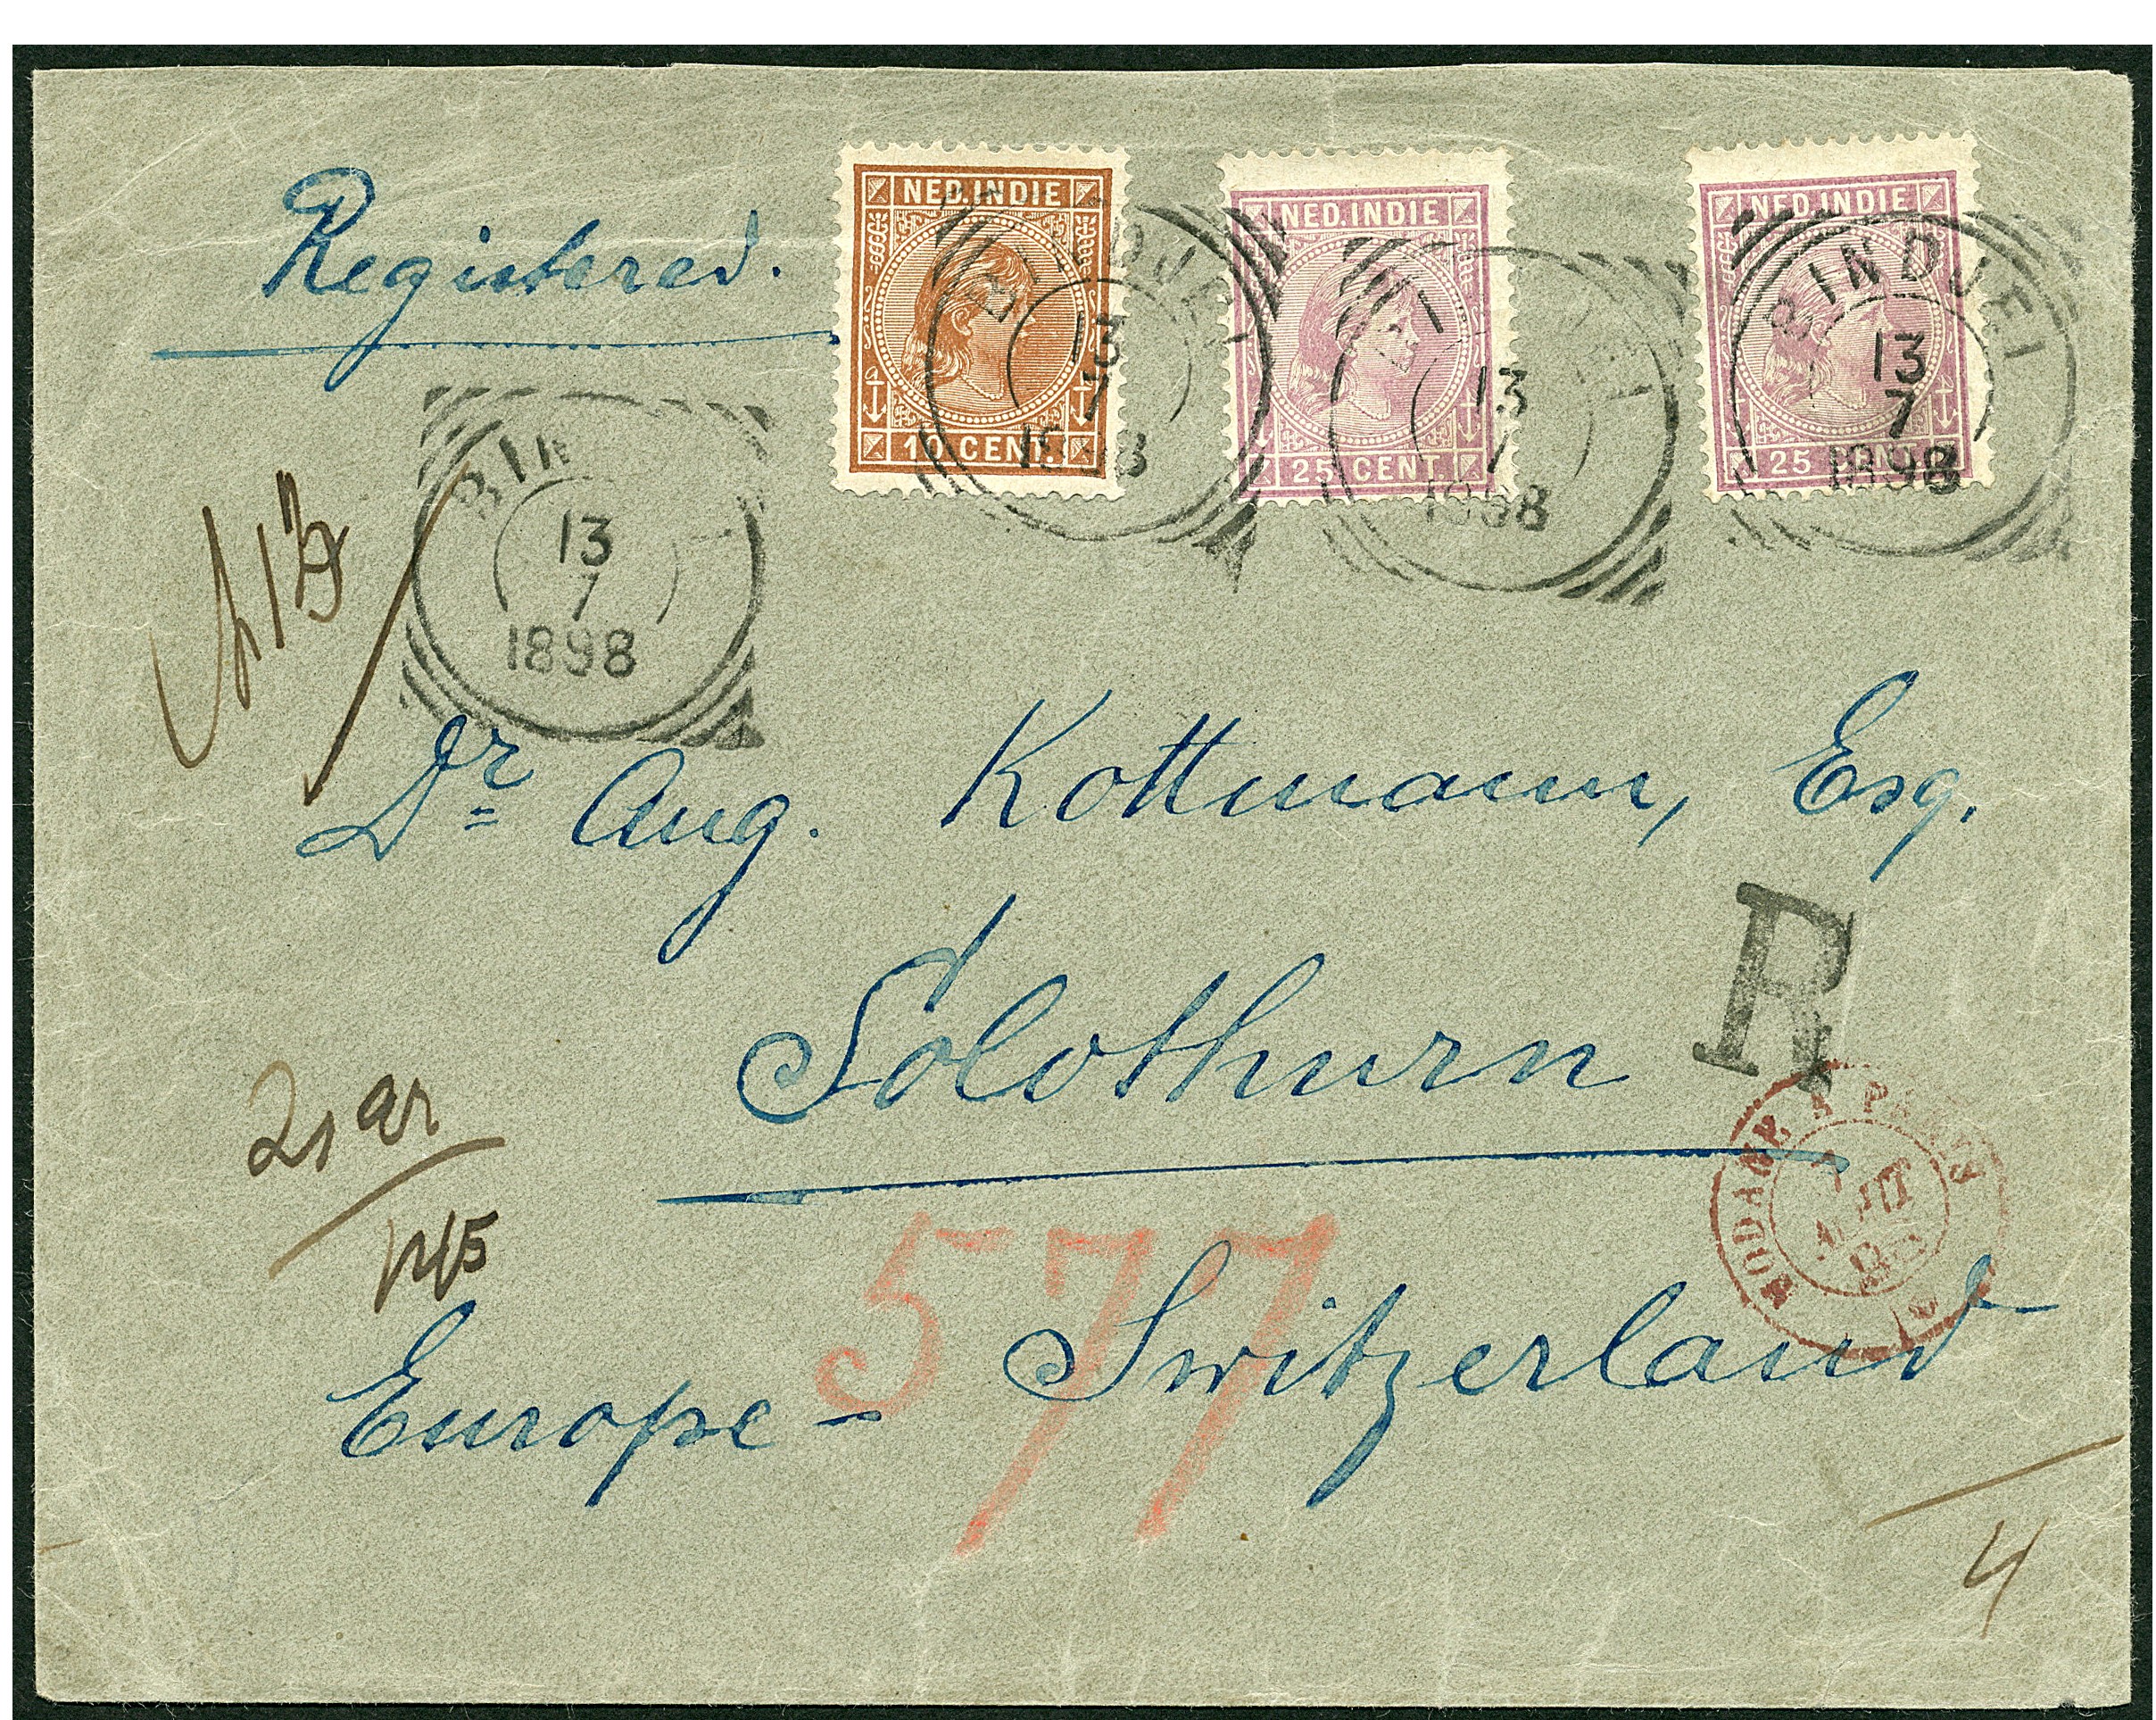 Registered.
NED. INDIE
10 CENT.
NED. INDIE
25 CENT.
NED. INDIE
25 CENT.
BINDJEI
13
7
1898
13
7
1898
BINDJEI
13
7
1898
BIN
13
7
1898
Dr Aug. Kottmann, Esq.
Solothurn
R
21 gr
145
577
MODANE A PARIS
Europe - Switzerland
4